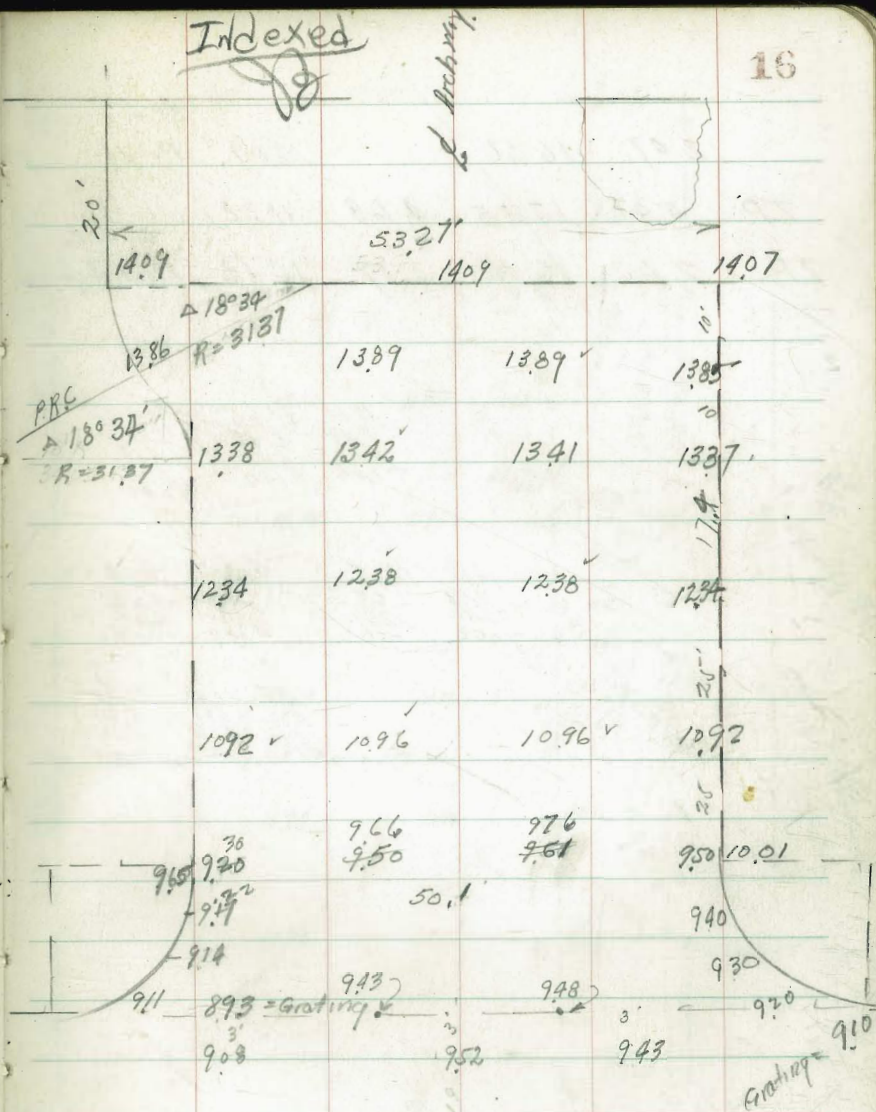 Indexed
16
20'
53.27'
1409 1409 1407
Δ 18°34
R=3137
10'
13.86 13.89 13.89 1385
P.R.C
Δ 18° 34'
R=31.37
10
1338 13.42 13.41 1337
17.4
1234 1238 1238 1234
25'
1092 1096 10.96 1092
25
966 976
30
965 920 9.50 9.61 950 10.01
22
917 50.1 940
914 930
943 948
911 893 = Grating 920
3' 3' 3'
908 952 943
Grating = 910